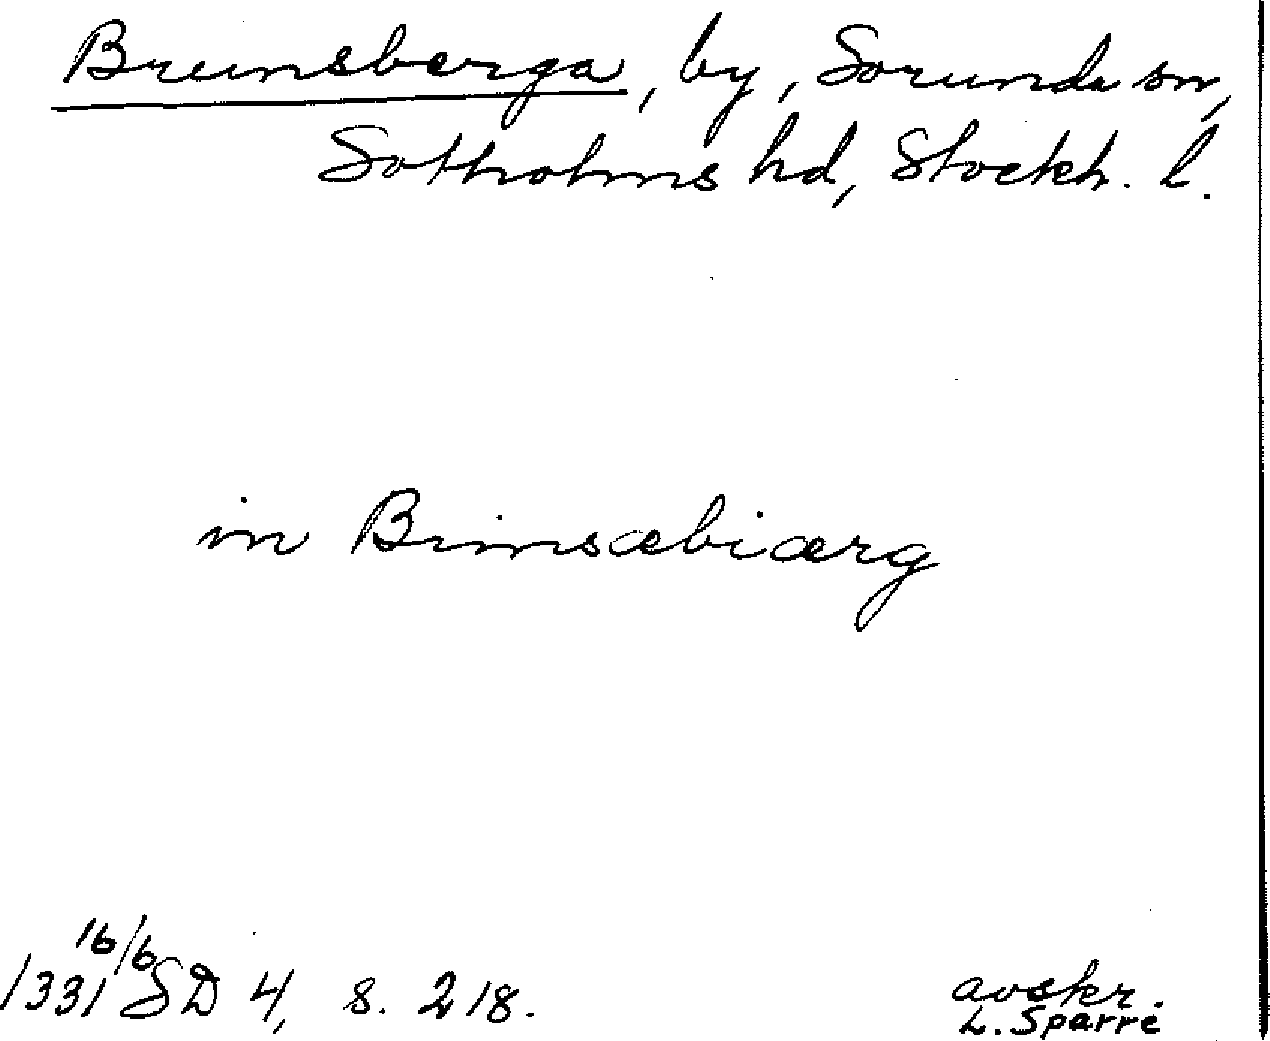 Brunsberga, by, Sorunda sn,
Sotholms hd, Stockh. l.
in Brimsæbiærg
1331 16/6 SD 4, s. 218.
avskr.
L. Sparre